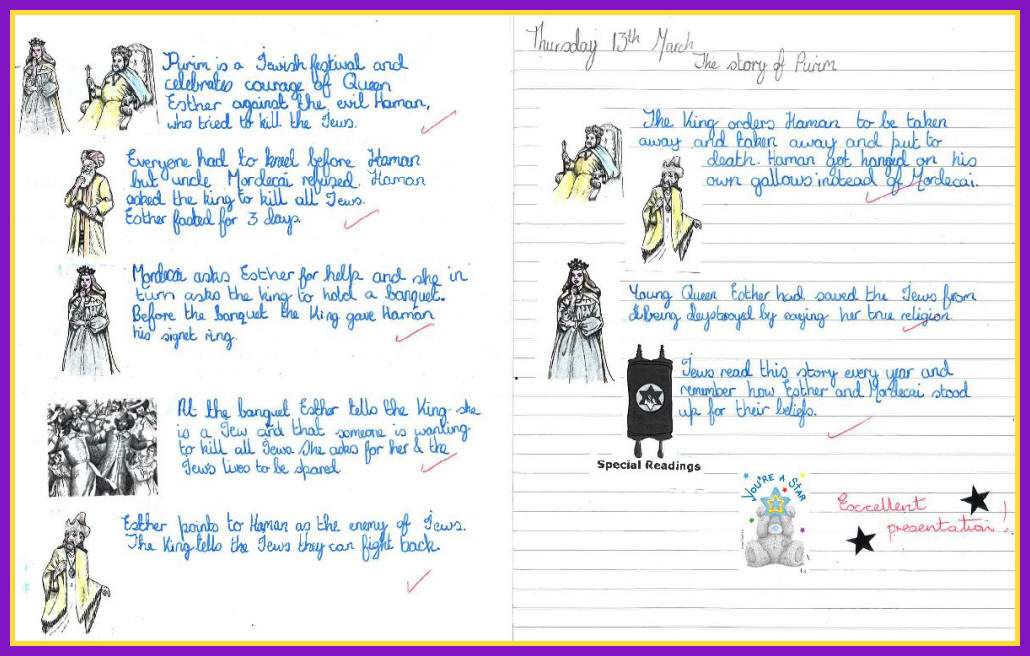 Purim is a Jewish festival and
celebrates courage of Queen
Esther against the evil Haman,
who tried to kill the Jews.
Everyone had to kneel before Haman
but uncle Mordecai refused. Haman
asked the king to kill all Jews.
Esther fasted for 3 days.
Mordecai asks Esther for help and she in
turn asks the king to hold a banquet.
Before the banquet the King gave Haman
his signet ring.
At the banquet Esther tells the King she
is a Jew and that someone is wanting
to kill all Jews. She asks for her & the
Jews lives to be spared
Esther points to Haman as the enemy of Jews.
The King tells the Jews they can fight back.
Thursday 13th March
The story of Purim
The King orders Haman to be taken
away and taken away and put to
death. Haman got hanged on his
own gallows instead of Mordecai.
Young Queen Esther had saved the Jews from
being deystroyed by saying her true religion.
Jews read this story every year and
remember how Esther and Mordecai stood
up for their beliefs.
Special Readings
YOU'RE A STAR
Excellent
presentation!